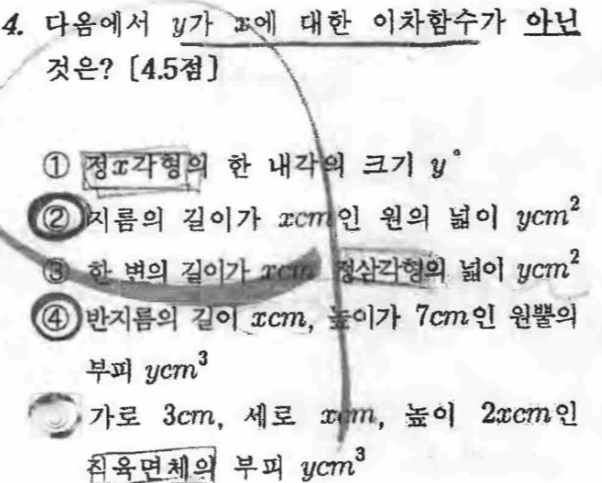 4. 다음에서 y가 x에 대한 이차함수가 아닌
것은? [4.5점]
① 정x각형의 한 내각의 크기 y°
② 지름의 길이가 xcm인 원의 넓이 ycm²
③ 한 변의 길이가 xcm 정삼각형의 넓이 ycm²
④ 반지름의 길이 xcm, 높이가 7cm인 원뿔의
부피 ycm³
가로 3cm, 세로 xcm, 높이 2xcm인
직육면체의 부피 ycm³